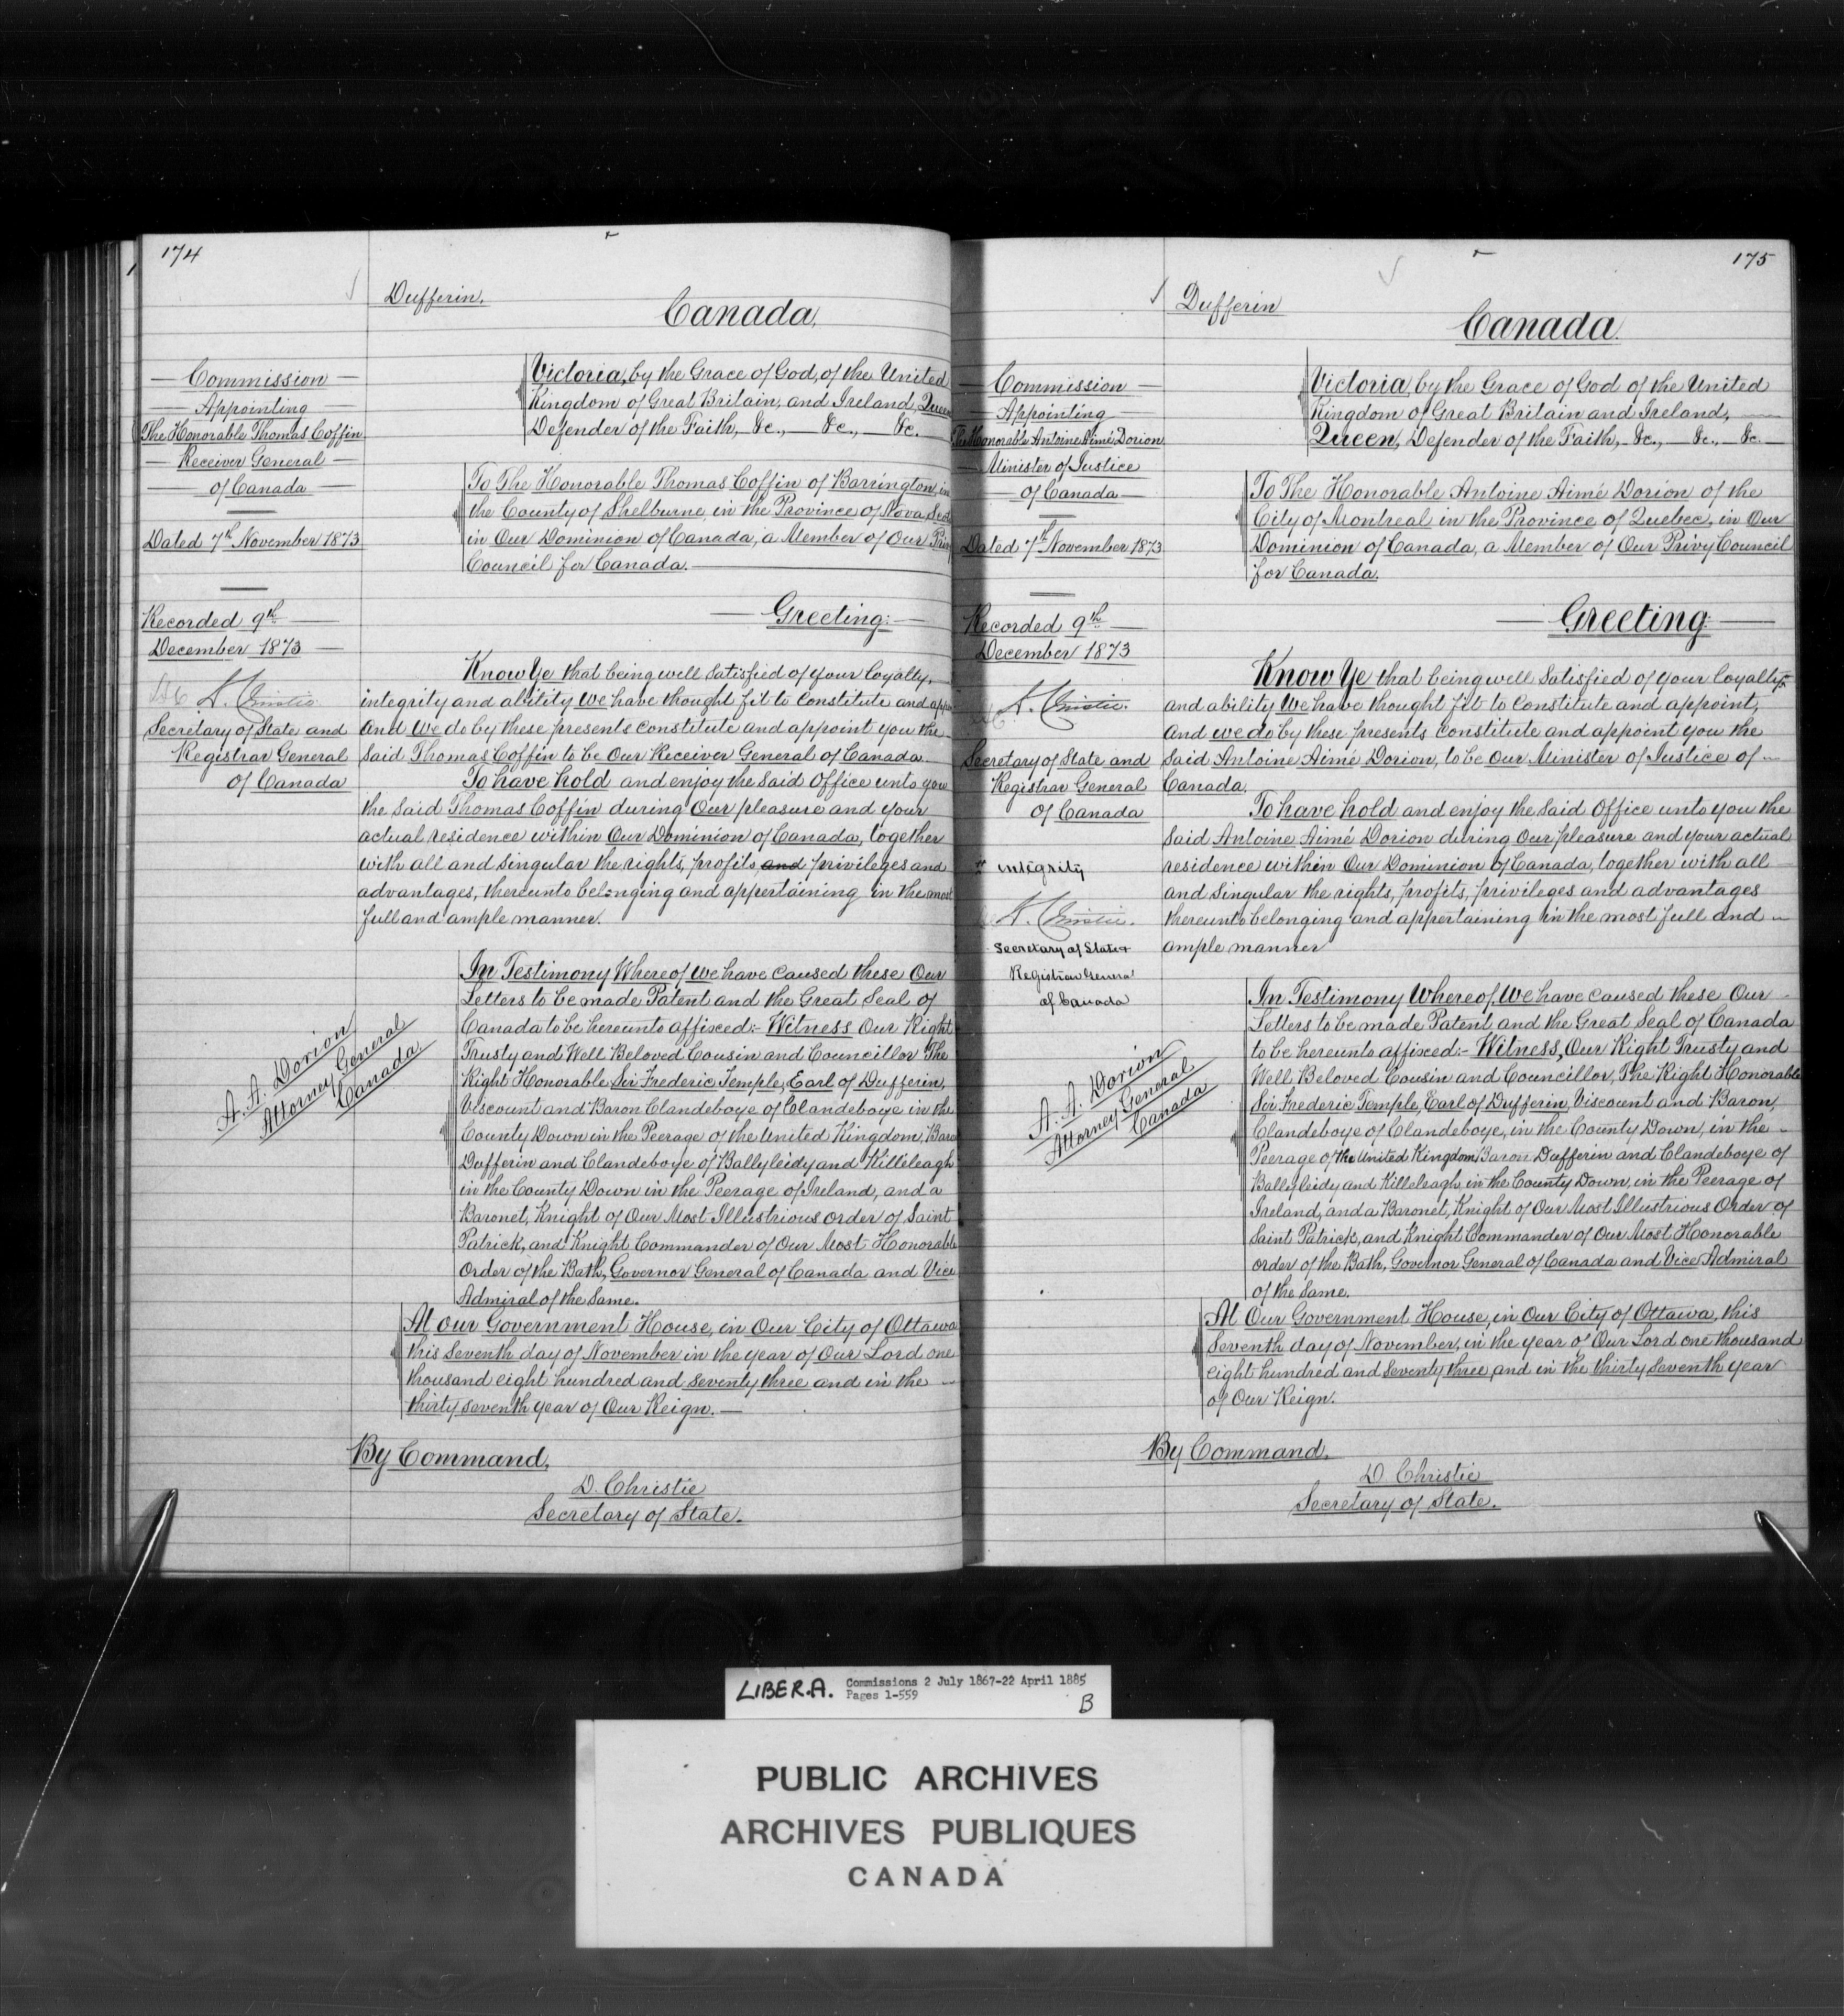 174
Dufferin.
Canada,
Commission
Appointing
The Honorable Thomas Coffin
Receiver General
of Canada
Dated 7th November 1873
Recorded 9th
December 1873
Christie
Secretary of State and
Registrar General
of Canada
Victoria, by the Grace of God, of the United
Kingdom of Great Britain, and Ireland, Queen
Defender of the Faith, &c., &c., &c.
To The Honorable Thomas Coffin of Barrington, in
the County of Shelburne, in the Province of Nova
in Our Dominion of Canada, a Member of Our
Council for Canada.
Greeting:
Know Ye that being well Satisfied of your loyalty,
integrity and ability We have thought fit to Constitute and
And We do by these presents Constitute and appoint you the
Said Thomas Coffin to be Our Receiver General of Canada.
To have hold and enjoy the Said Office unto you
the Said Thomas Coffin during Our pleasure and your
actual residence within Our Dominion of Canada, together
with all and Singular the rights, profits, and privileges and
advantages, thereunto belonging and appertaining in the most
full and ample manner.
A. A. Dorion
Attorney General
Canada
In Testimony Whereof We have caused these Our
Letters to be made Patent and the Great Seal of
Canada to be hereunto affixed:- Witness Our Right
Trusty and Well Beloved Cousin and Councillor The
Right Honorable Sir Frederic Temple, Earl of Dufferin,
Viscount and Baron Clandeboye of Clandeboye in the
County Down in the Peerage of the United Kingdom,
Dufferin and Clandeboye of Ballyleidy and Killeleagh
in the County Down in the Peerage of Ireland, and a
Baronet, Knight of Our Most Illustrious Order of Saint
Patrick, and Knight Commander of Our Most Honorable
Order of the Bath, Governor General of Canada and Vice
Admiral of the Same.
At our Government House, in Our City of Ottawa
this Seventh day of November in the year of Our Lord one
thousand eight hundred and seventy three and in the
thirty seventh year of Our Reign.
By Command,
D. Christie
Secretary of State.
175
Dufferin
Canada.
Commission
Appointing
The Honorable Antoine Aimé Dorion
Minister of Justice
of Canada
Dated 7th November 1873
Recorded 9th
December 1873
Christie.
Secretary of State and
Registrar General
of Canada
integrity
Christie.
Secretary of State &
Registrar General
of Canada
Victoria, by the Grace of God of the United
Kingdom of Great Britain and Ireland,
Queen, Defender of the Faith, &c., &c., &c.
To The Honorable Antoine Aimé Dorion of the
City of Montreal in the Province of Quebec, in Our
Dominion of Canada, a Member of Our Privy Council
for Canada.
Greeting:
Know Ye that being well Satisfied of your loyalty
and ability We have thought fit to Constitute and appoint,
And we do by these presents Constitute and appoint you the
Said Antoine Aimé Dorion, to be Our Minister of Justice of
Canada.
To have hold and enjoy the Said Office unto you the
Said Antoine Aimé Dorion during Our pleasure and your actual
residence within Our Dominion of Canada, together with all
and Singular the rights, profits, privileges and advantages
thereunto belonging and appertaining in the most full and
ample manner
A. A. Dorion
Attorney General
Canada
In Testimony Whereof, We have caused these Our
Letters to be made Patent and the Great Seal of Canada
to be hereunto affixed:- Witness, Our Right Trusty and
Well Beloved Cousin and Councillor, The Right Honorable
Sir Frederic Temple, Earl of Dufferin, Viscount and Baron,
Clandeboye of Clandeboye, in the County Down, in the
Peerage of the United Kingdom, Baron Dufferin and Clandeboye of
Ballyleidy and Killeleagh, in the County Down, in the Peerage of
Ireland, and a Baronet, Knight of Our Most Illustrious Order of
Saint Patrick, and Knight Commander of Our Most Honorable
order of the Bath, Governor General of Canada and Vice Admiral
of the Same.
At Our Government House, in Our City of Ottawa, this
Seventh day of November, in the year of Our Lord one thousand
eight hundred and seventy three, and in the thirty seventh year
of Our Reign.
By Command.
D. Christie
Secretary of State.
LIBER.A.
Commissions 2 July 1867-22 April 1885
Pages 1-559
B
PUBLIC ARCHIVES
ARCHIVES PUBLIQUES
CANADA